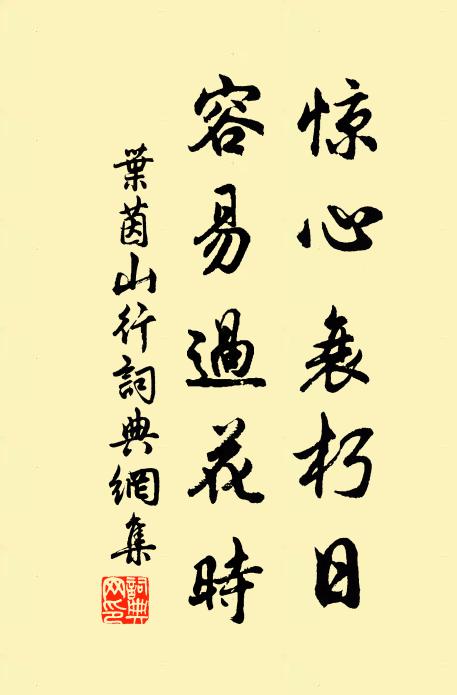 惊心衰朽日
容易過花時
葉茵山行詞典網集
詞典网印